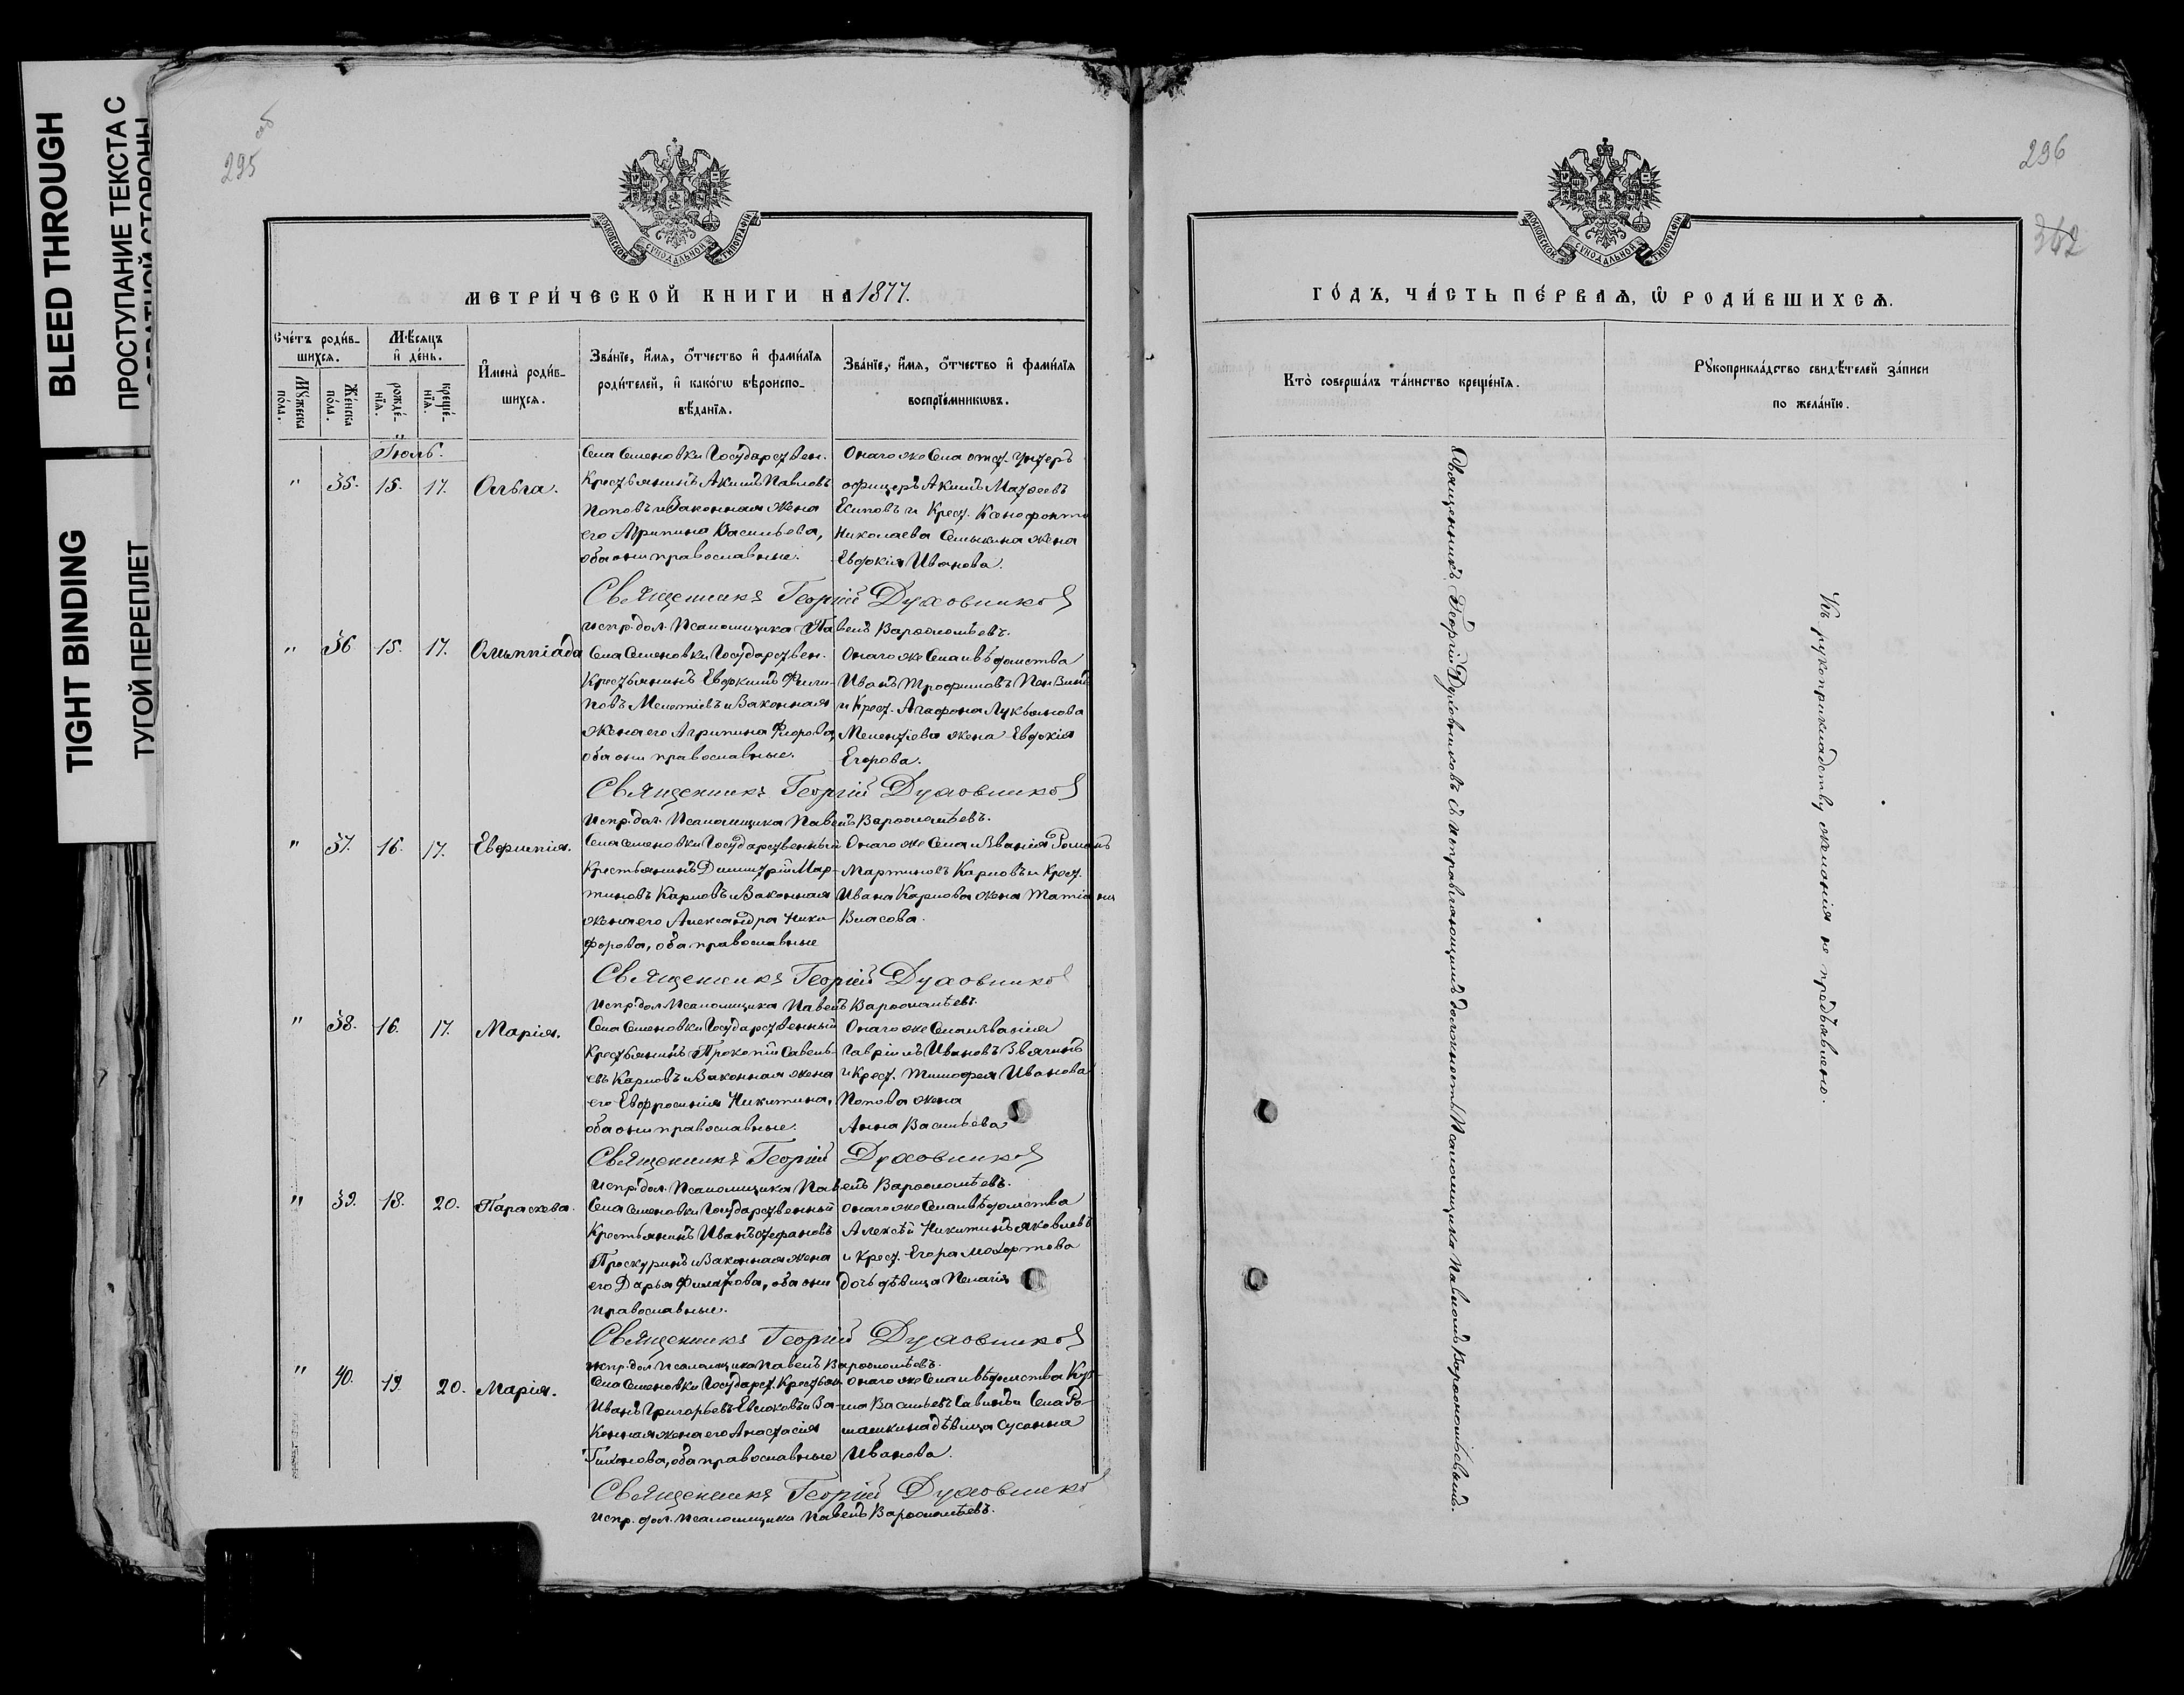 BLEED THROUGH
ПРОСТУПАНИЕ ТЕКСТА С
ОБРАТНОЙ СТОРОНЫ
TIGHT BINDING
ТУГОЙ ПЕРЕПЛЕТ
295 об
МОСКОВСКОЙ СѴНОДАЛЬНОЙ ТИПОГРАФІИ
МЕТРИ́ЧЕСКОЙ КНИГИ НА 1877.
Сче́тъ роди́в-
шихсѧ.
Мꙋ́жеска
по́ла.
Же́нска
по́ла.
Мѣ́сѧцъ
и҆ де́нь.
рожде́-
нїѧ.
креще́-
нїѧ.
И҆мена̀ роди́в-
шихсѧ.
Зва́нїе, и҆́мѧ, ѻ҆́тчество и҆ фами́лїѧ
роди́телей, и҆ како́гѡ вѣроиспо-
вѣ́данїѧ.
Зва́нїе, и҆́мѧ, ѻ҆́тчество и҆ фами́лїѧ
воспрїе́мникѡвъ.
Іюль.
" 35. 15. 17. Ольга.
Села Семеновки Государствен.
Крестьянинъ Акимъ Павловъ
Поповъ и Законная жена
его Агрипина Васильева,
оба они православные.
Онаго же Села отст. Унтеръ
офицеръ Акимъ Матѳеевъ
Есиповъ и Крест. Ксенофонта
Николаева Семыкина жена
Евдокия Иванова.
Священникъ Георгій Духовниковъ
Испр. дол. Псаломщика Павелъ Варѳоломѣевъ.
" 36 15. 17. Олимпіада
Села Семеновки Государствен.
Крестьянинъ Евдокимъ Фили-
повъ Мелентіевъ и Законная
жена его Агрипина Фирова,
оба они православные.
Онаго же Села и вѣдомства
Иванъ Трофимовъ
и Крест. Агафона Лукьянова
Мелентіева жена Евдокія
Егорова.
Священникъ Георгій Духовниковъ
Испр. дол. Псаломщика Павелъ Варѳоломѣевъ.
" 37. 16. 17. Евфимія.
Села Семеновки Государственный
Крестьянинъ Димитрій Мар-
тиновъ Карповъ и Законная
жена его Александра Ники-
форова, оба православные
Онаго же Села и Званія Романъ
Мартиновъ Карповъ и Крест.
Ивана Карпова жена Татіана
Власова.
Священникъ Георгій Духовниковъ
Испр. дол. Псаломщика Павелъ Варѳоломѣевъ.
" 38. 16. 17. Марія.
Села Семеновки Государственный
Крестьянинъ Прокопій Савель-
евъ Карповъ и Законная жена
его Евфросинія Никитина,
оба они православные.
Онаго же Села и Званія
Гавріилъ Ивановъ Звягинъ
и Крест. Тимофея Иванова
Попова жена
Анна Васильева
Священникъ Георгій Духовниковъ
Испр. дол. Псаломщика Павелъ Варѳоломѣевъ.
" 39. 18. 20. Параскева.
Села Семеновки Государственный
Крестьянинъ Иванъ Стефановъ
Проскуринъ и Законная жена
его Дарья Филатова, оба они
православные.
онаго же Села и вѣдомства
Алексѣй Никитинъ Яковлевъ
и Крест. Егора Мохортова
дочь дѣвица Пелагія
Священникъ Георгій Духовниковъ
Испр. дол. Псаломщика Павелъ Варѳоломѣевъ.
" 40. 19. 20. Марія.
Села Семеновки Государст. Крестьян.
Иванъ Григорьевъ Евсюковъ и За-
конная жена его Анастасія
Тихонова, оба православные
онаго же Села и вѣдомства Кузь-
ма Васильевъ Савинъ и Села Ро-
машкина дѣвица Сусанна
Иванова.
Священникъ Георгій Духовниковъ
Испр. дол. Псаломщика Павелъ Варѳоломѣевъ.
296
362
МОСКОВСКОЙ СѴНОДАЛЬНОЙ ТИПОГРАФІИ
ГО́ДЪ, ЧА́СТЬ ПЕ́РВАѦ, Ѡ҆ РОДИ́ВШИХСѦ.
Кто̀ соверша́лъ та́инство креще́нїѧ.
Рꙋкоприкла́дство свидѣ́телей за́писи
по жела́нїю.
Священникъ Георгій Духовниковъ съ исправляющимъ должность Псаломщика Павломъ Варѳоломѣевымъ.
Къ рукоприкладству желанія не предъявлено.